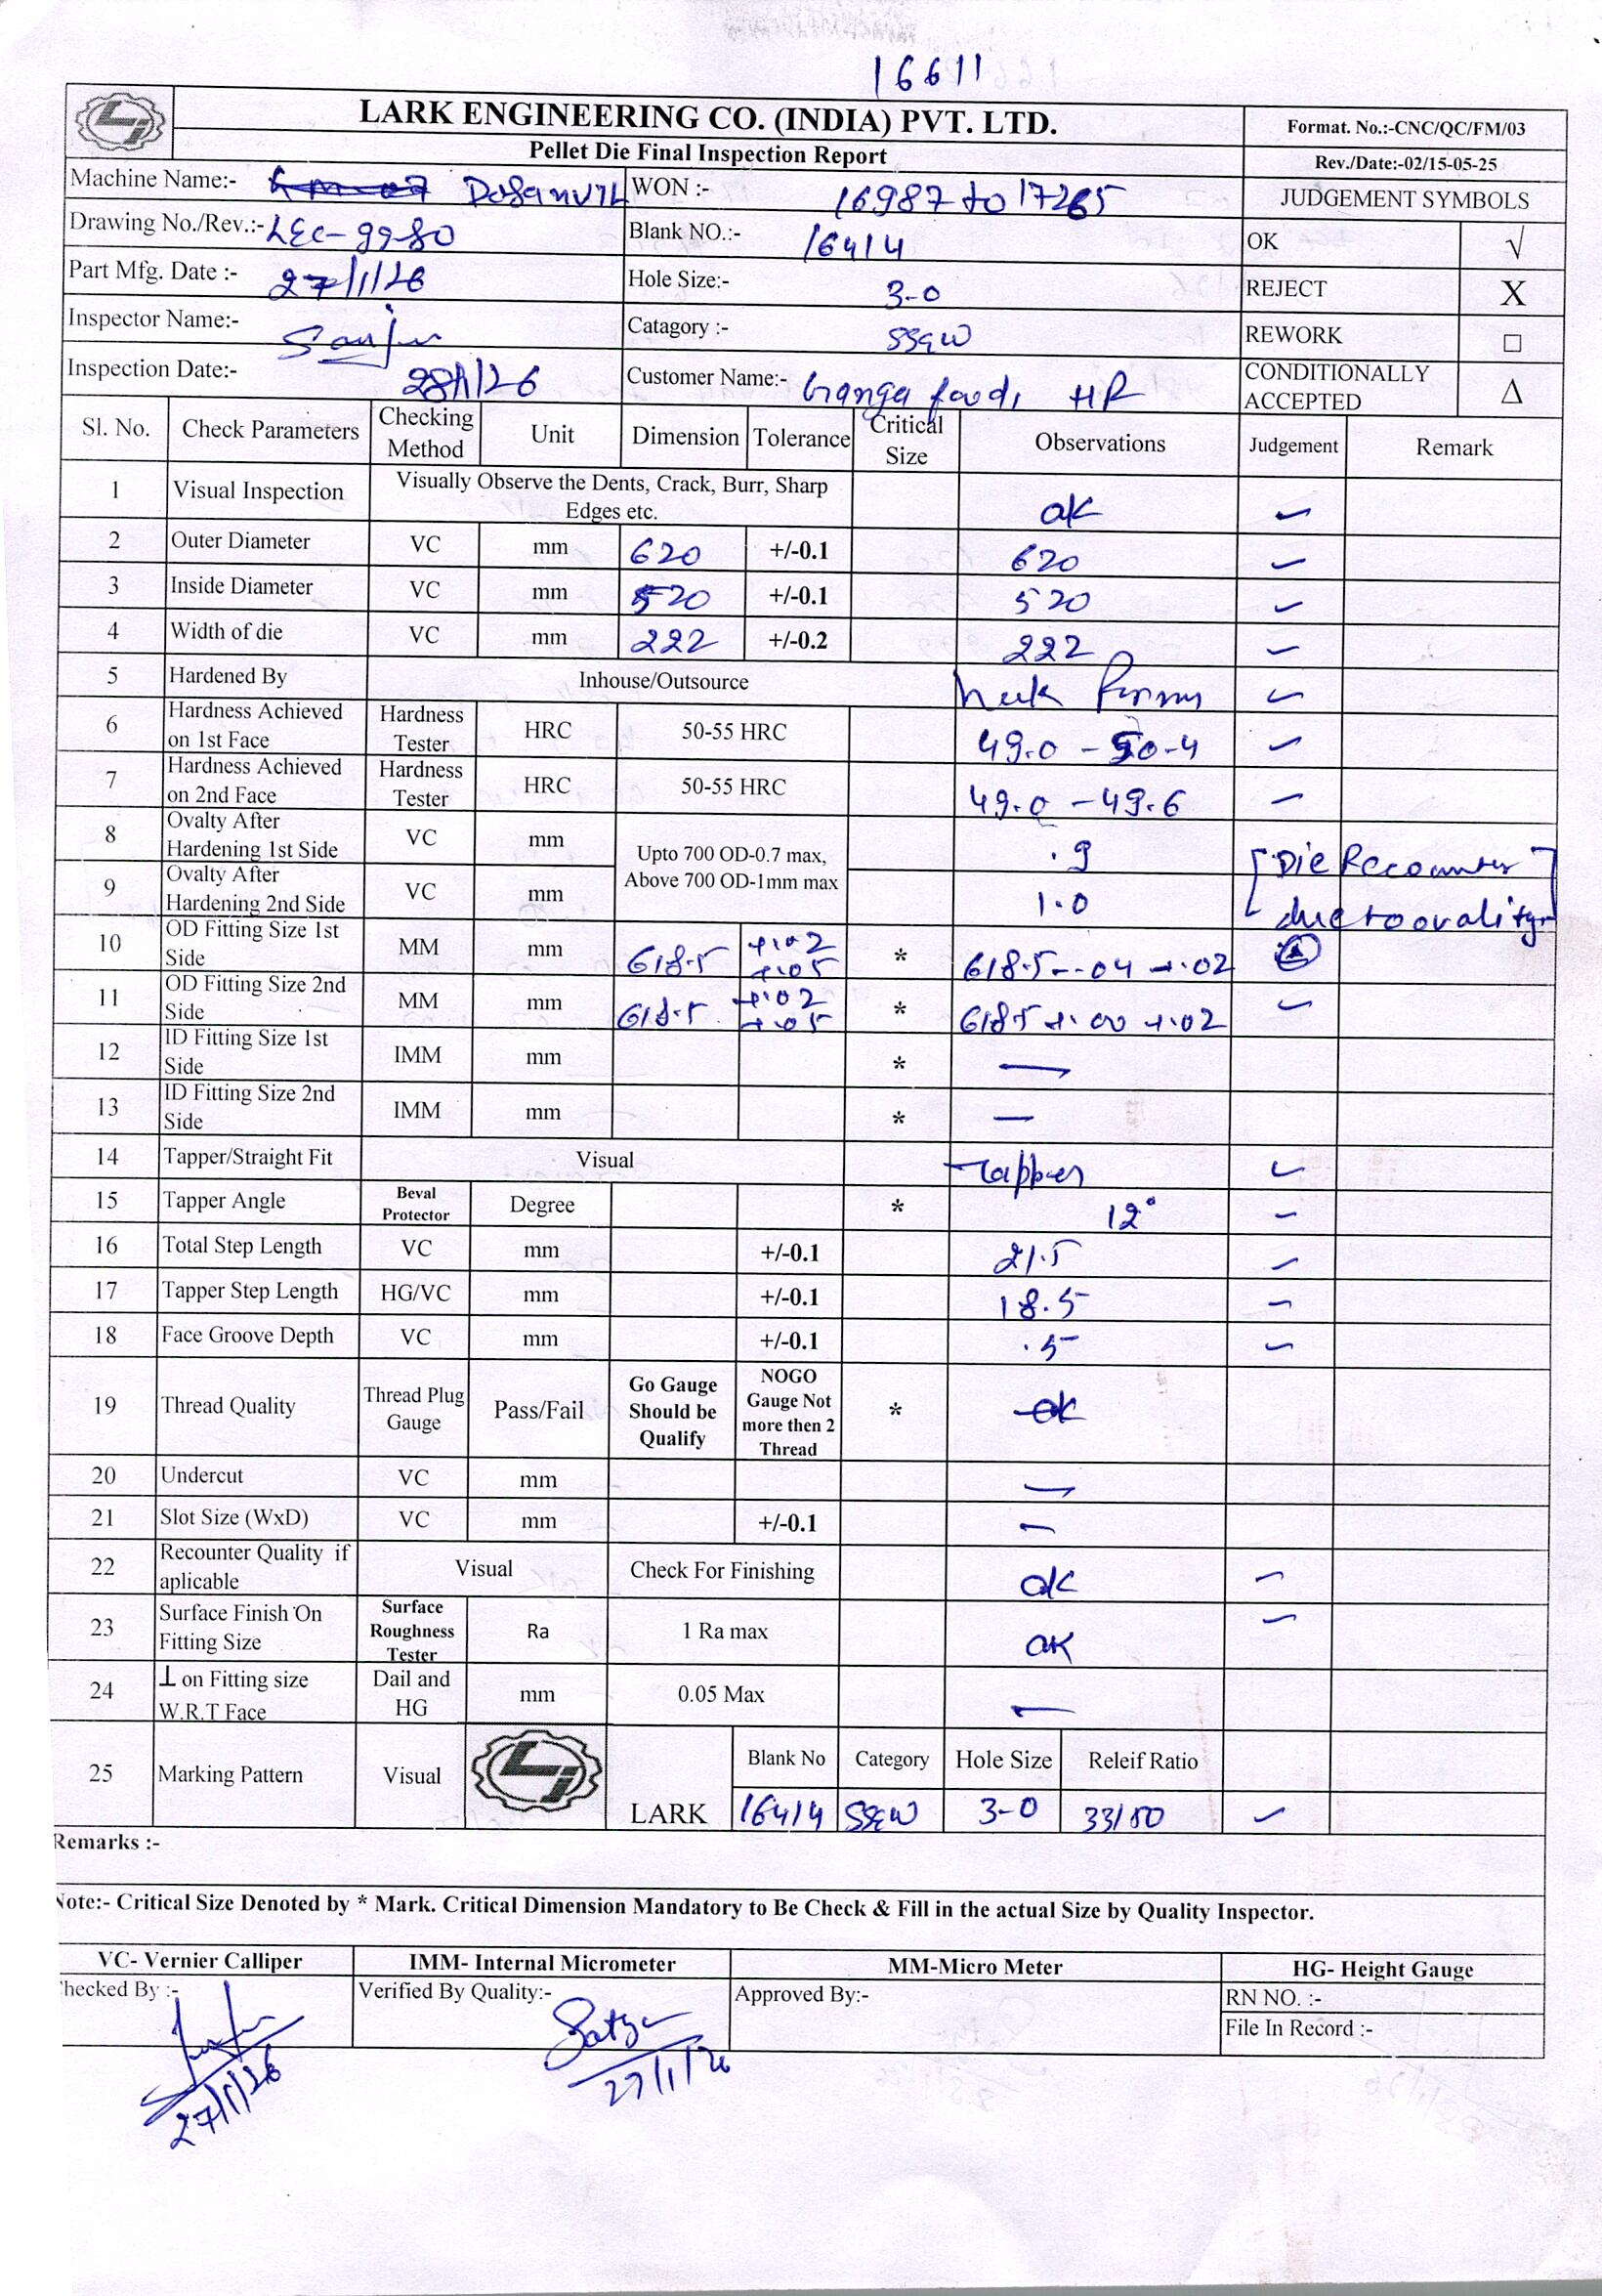 16611
LARK ENGINEERING CO. (INDIA) PVT. LTD.
Format. No.:-CNC/QC/FM/03
Pellet Die Final Inspection Report
Rev./Date:-02/15-05-25
Machine Name:- WON :- 16987 to 17265 JUDGEMENT SYMBOLS
Drawing No./Rev.:- LEC-9980 Blank NO.:- 16414 OK √
Part Mfg. Date :- 27/1/26 Hole Size:- 3-0 REJECT X
Inspector Name:- Sanju Catagory :- SS&W REWORK □
Inspection Date:- 28/1/26 Customer Name:- Ganga food, HR CONDITIONALLY ACCEPTED Δ
Sl. No. Check Parameters Checking Method Unit Dimension Tolerance Critical Size Observations Judgement Remark
1 Visual Inspection Visually Observe the Dents, Crack, Burr, Sharp Edges etc. ok ✓
2 Outer Diameter VC mm 620 +/-0.1 620 ✓
3 Inside Diameter VC mm 520 +/-0.1 520 ✓
4 Width of die VC mm 222 +/-0.2 222 ✓
5 Hardened By Inhouse/Outsource ✓
6 Hardness Achieved on 1st Face Hardness Tester HRC 50-55 HRC 49.0 - 50-4 ✓
7 Hardness Achieved on 2nd Face Hardness Tester HRC 50-55 HRC 49.0 - 49.6 ✓
8 Ovalty After Hardening 1st Side VC mm Upto 700 OD-0.7 max, Above 700 OD-1mm max .9 [Die Recounter
9 Ovalty After Hardening 2nd Side VC mm 1.0 due to ovality]
10 OD Fitting Size 1st Side MM mm 618.5 +.02 +.05 * 618.5 -.04 +.02 Δ
11 OD Fitting Size 2nd Side MM mm 618.5 +.02 +.05 * 618.5 +.00 +.02 ✓
12 ID Fitting Size 1st Side IMM mm * —
13 ID Fitting Size 2nd Side IMM mm * —
14 Tapper/Straight Fit Visual Tapper ✓
15 Tapper Angle Beval Protector Degree * 12° ✓
16 Total Step Length VC mm +/-0.1 21.5 ✓
17 Tapper Step Length HG/VC mm +/-0.1 18.5 ✓
18 Face Groove Depth VC mm +/-0.1 .5 ✓
19 Thread Quality Thread Plug Gauge Pass/Fail Go Gauge Should be Qualify NOGO Gauge Not more then 2 Thread * ok
20 Undercut VC mm —
21 Slot Size (WxD) VC mm +/-0.1 —
22 Recounter Quality if aplicable Visual Check For Finishing ok ✓
23 Surface Finish On Fitting Size Surface Roughness Tester Ra 1 Ra max OK ✓
24 ⊥ on Fitting size W.R.T Face Dail and HG mm 0.05 Max —
25 Marking Pattern Visual LARK Blank No Category Hole Size Releif Ratio
16414 SS&W 3-0 33/50 ✓
Remarks :-
Note:- Critical Size Denoted by * Mark. Critical Dimension Mandatory to Be Check & Fill in the actual Size by Quality Inspector.
VC- Vernier Calliper IMM- Internal Micrometer MM-Micro Meter HG- Height Gauge
Checked By :- Verified By Quality:- Satya Approved By:- RN NO. :-
File In Record :-
27/1/26 27/1/26